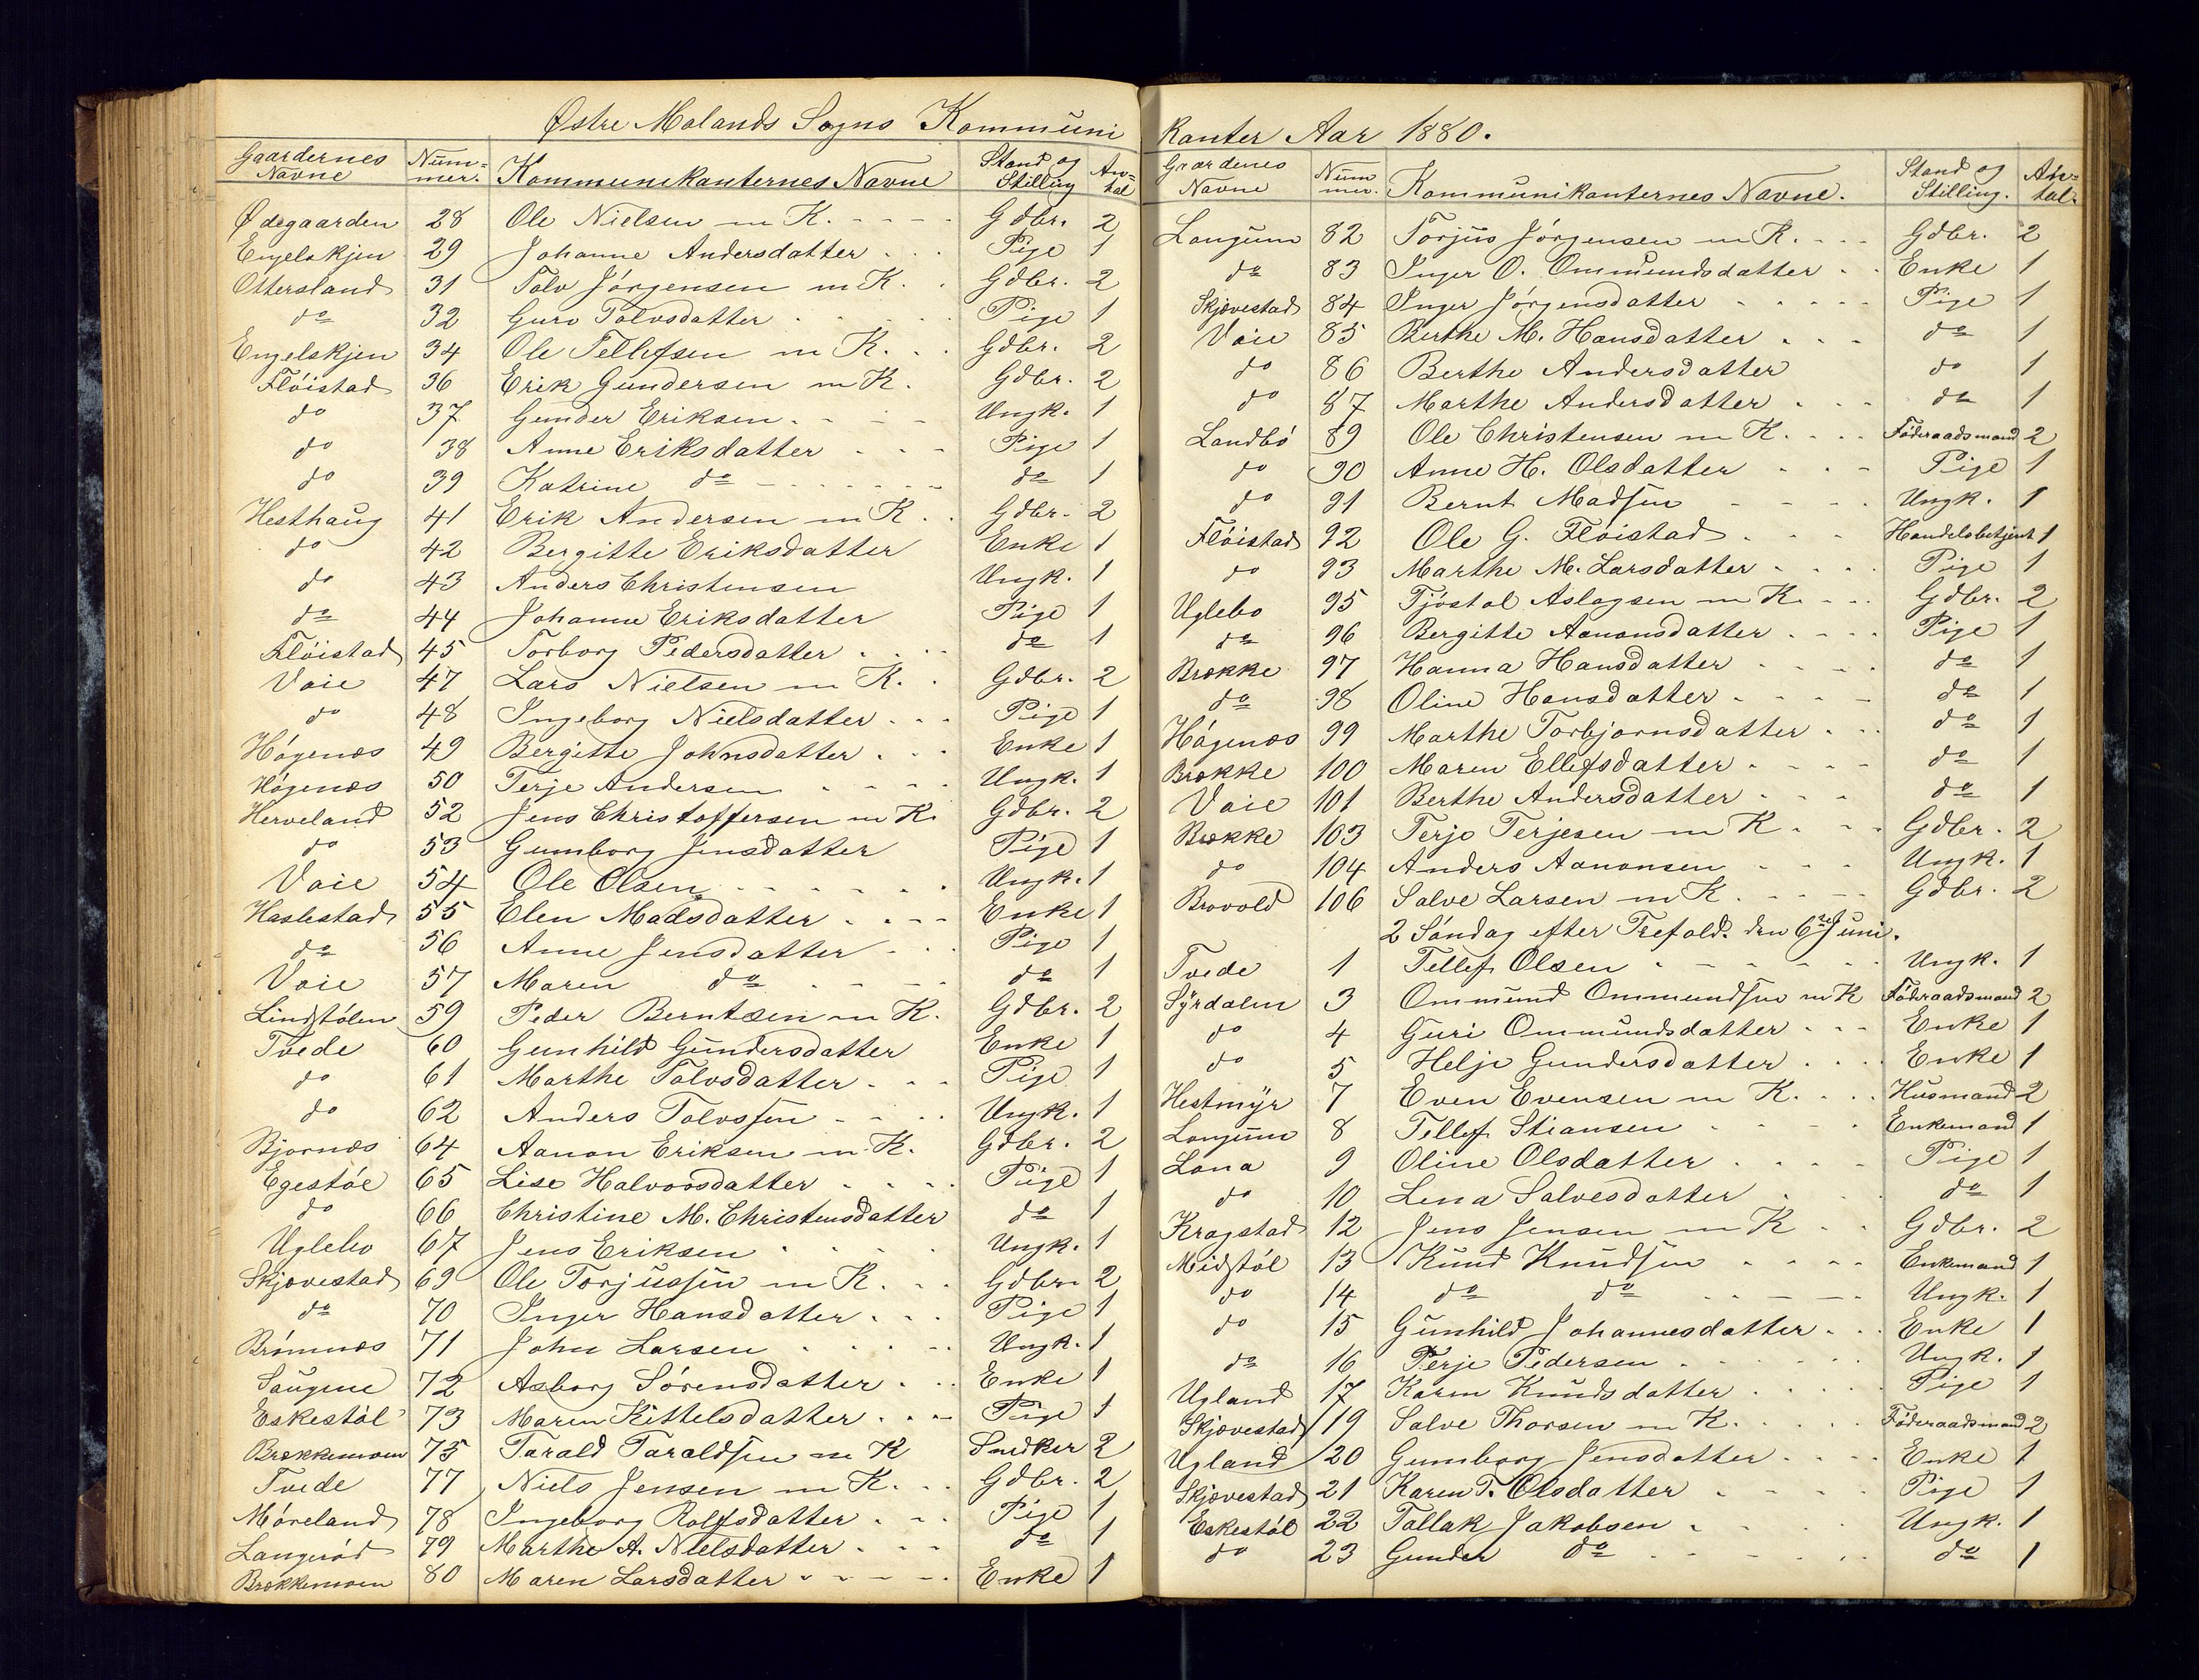 Østre Molands Sogns Kommuni
Gaardernes Navne Num-mer. Kommunikanternes Navne Stand og Stilling An-tal
Ødegaarden 28 Ole Nielsen m K. Gdbr. 2
Engelskjen 29 Johanne Andersdatter Pige 1
Ottersland 31 Tolv Jörgensen m K. Gdbr. 2
do 32 Guro Tolvsdatter Pige 1
Engelskjen 34 Ole Tellefsen m K. Gdbr. 2
Flöistad 36 Erik Gundersen m K. Gdbr. 2
do 37 Gunder Eriksen Ungk. 1
do 38 Anne Eriksdatter Pige 1
do 39 Katrine do do 1
Hesthaug 41 Erik Andersen m K. Gdbr. 2
do 42 Bergitte Eriksdatter Enke 1
do 43 Anders Christensen Ungk. 1
do 44 Johanne Eriksdatter Pige 1
Flöistad 45 Torborg Pedersdatter do 1
Vaie 47 Lars Nielsen m K. Gdbr. 2
do 48 Ingeborg Nielsdatter Pige 1
Högenæs 49 Bergitte Johnsdatter Enke 1
Högenæs 50 Terje Andersen Ungk. 1
Herveland 52 Jens Christoffersen m K. Gdbr. 2
do 53 Gumborg Jensdatter Pige 1
Vaie 54 Ole Olsen Ungk. 1
Haslestad 55 Elen Madsdatter Enke 1
do 56 Anne Jensdatter Pige 1
Vaie 57 Maren do do 1
Lindstölen 59 Peder Berntsen m K. Gdbr. 2
Tvede 60 Gunhild Gundersdatter Enke 1
do 61 Marthe Tolvsdatter Pige 1
do 62 Anders Tolvssen Ungk. 1
Bjornæs 64 Aanon Eriksen m K. Gdbr. 2
Egestöe 65 Lise Halvorsdatter Pige 1
do 66 Christine M. Christensdatter do 1
Uglebo 67 Jens Eriksen Ungk. 1
Skjævestad 69 Ole Torjussen m K. Gdbr. 2
do 70 Inger Hansdatter Pige 1
Brömnæs 71 John Larsen Ungk. 1
Saugene 72 Asborg Sörensdatter Enke 1
Eskestöl 73 Maren Kittelsdatter Pige 1
Brækkemoen 75 Tarald Taraldsen m K Snedker 2
Tvede 77 Niels Jensen m K. Gdbr. 2
Möreland 78 Ingeborg Rolfsdatter Pige 1
Langeröd 79 Marthe A. Nielsdatter do 1
Brækkemoen 80 Maren Larsdatter Enke 1
kanter Aar 1880.
Gaardenes Navne Num mer. Kommunikanternes Navne. Stand og Stilling. An-tal.
Langum 82 Torjus Jörgensen m K. Gdbr. 2
do 83 Inger O. Ommundsdatter Enke 1
Skjævestad 84 Inger Jörgensdatter Pige 1
Vaie 85 Berthe M. Hansdatter do 1
do 86 Berthe Andersdatter do 1
do 87 Marthe Andersdatter do 1
Landbö 89 Ole Christensen m K. Föderaadsmand 2
do 90 Anne H. Olsdatter Pige 1
do 91 Bernt Madsen Ungk. 1
Flöistad 92 Ole G. Flöistad Handelsbetjent 1
do 93 Marthe M. Larsdatter Pige 1
Uglebo 95 Tjöstol Aslagsen m K. Gdbr. 2
do 96 Bergitte Aanonsdatter Pige 1
Brække 97 Hanna Hansdatter do 1
do 98 Oline Hansdatter do 1
Högenæs 99 Marthe Torbjornsdatter do 1
Brække 100 Maren Ellefsdatter do 1
Vaie 101 Berthe Andersdatter do 1
Brække 103 Terje Terjesen m K. Gdbr. 2
do 104 Anders Aanonsen Ungk. 1
Brovold 106 Salve Larsen m K. Gdbr. 2
2 Söndag efter Trefold. den 6te Juni.
Tvede 1 Tellef Olsen Ungk. 1
Syrdalen 3 Ommund Ommundsen m K Föderaadsmand 2
do 4 Guri Ommundsdatter Enke 1
do 5 Helje Gundersdatter Enke 1
Hestmyr 7 Even Evensen m K. Husmand 2
Langum 8 Tellef Stiansen Enkemand 1
Lona 9 Oline Olsdatter Pige 1
do 10 Lena Salvesdatter do 1
Kragstad 12 Jens Jensen m K Gdbr. 2
Midstöl 13 Knud Knudsen Enkemand 1
do 14 do do Ungk. 1
do 15 Gunhild Johannesdatter Enke 1
do 16 Terje Pedersen Ungk. 1
Ugland 17 Karen Knudsdatter Pige 1
Skjævestad 19 Salve Thorsen m K. Föderaadsmand 2
Ugland 20 Gumborg Jensdatter Enke 1
Skjævestad 21 Karen T. Olsdatter Pige 1
Eskestöl 22 Tallak Jakobsen Ungk. 1
do 23 Gunder do do 1